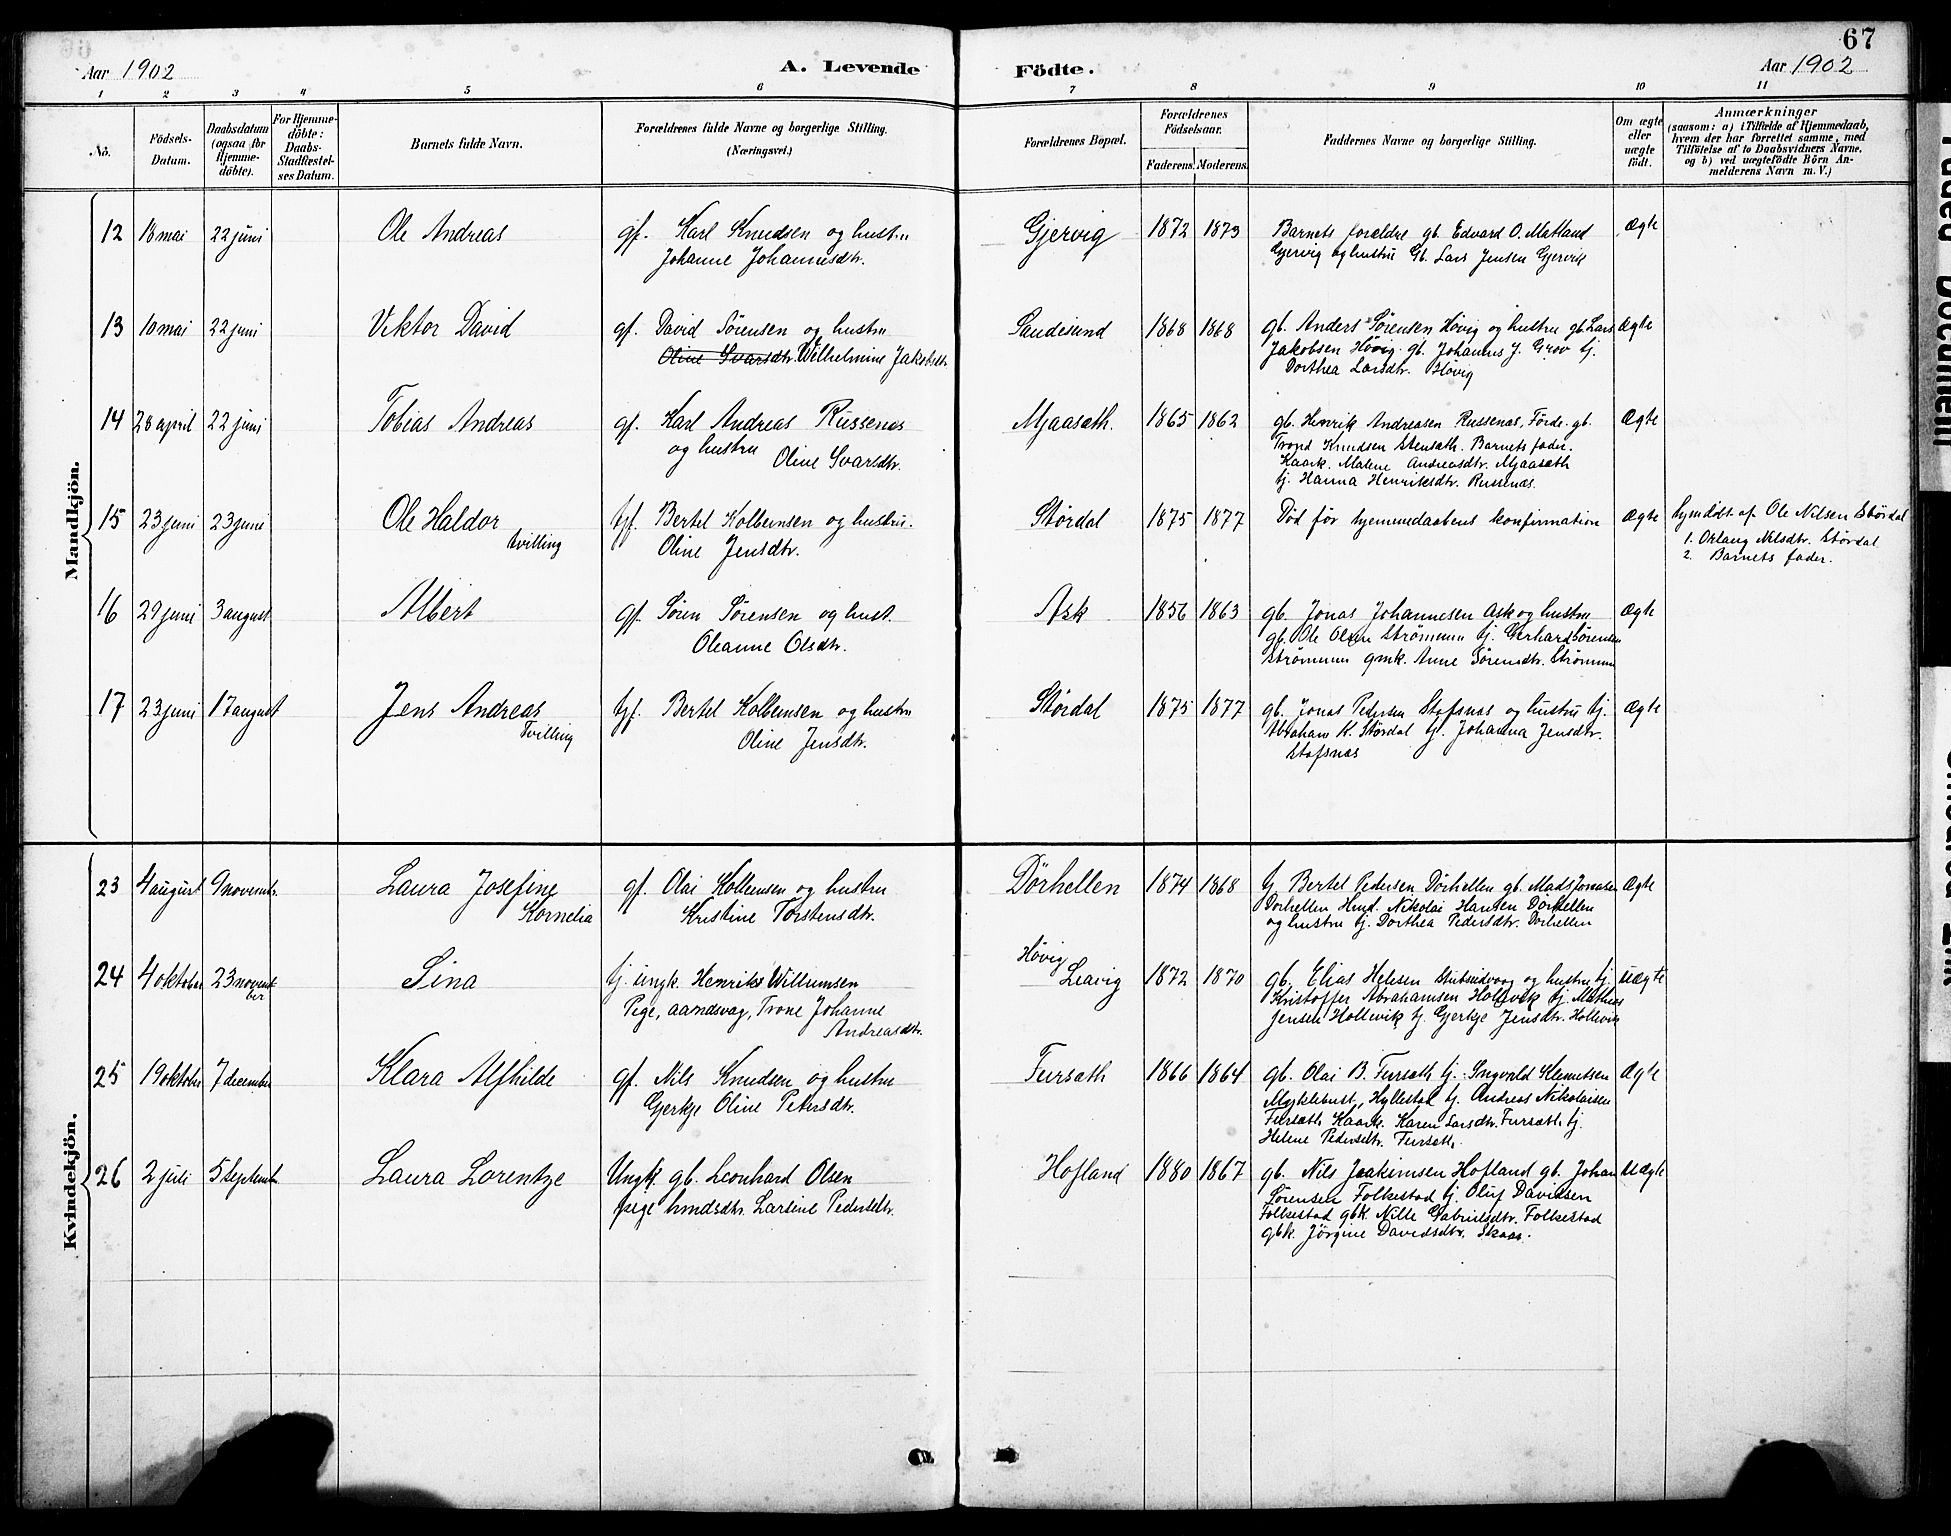 67
Aar 1902
A. Levende Födte.
Aar 1902
1 2 3 4 5 6 7 8 9 10 11
No.
Födsels-Datum.
Daabsdatum (ogsaa for Hjemme-döbte).
For Hjemme-döbte: Daabs-Stadfæstel-ses Datum.
Barnets fulde Navn.
Forældrenes fulde Navne og borgerlige Stilling.
(Næringsvei.)
Forældrenes Bopæl.
Forældrenes Födselsaar.
Faderens. Moderens.
Faddernes Navne og borgerlige Stilling.
Om ægte eller uægte födt.
Anmærkninger
(saasom: a) i Tilfælde af Hjemmedaab,
hvem der har forrettet samme, med
Tilföielse af to Daabsvidners Navne,
og b) ved uægtefödte Börn An-
melderens Navn m. V.)
Mandkjön.
12 18 mai 22 juni Ole Andreas gf. Karl Knudsen og hustru Gjervig 1872 1873 Barnets forældre gb. Edvard O. Matland Ægte
Johanne Johannesdtr. Gjervig og hustru Gb. Lars Jensen Gjervik
13 10 mai 22 juni Viktor David gf. David Sørensen og hustru Sandesund 1868 1868 gb. Anders Sørensen Høvig og hustru gb. Lars Ægte
Oline Ivarsdtr. Wilhelmine Jakobsdtr. Jakobsen Høvig. gb. Johannes J. Grov tj.
Dorthea Larsdtr. Høvig
14 28 april 22 juni Tobias Andreas gf. Karl Andreas Russenes Mjaasæth. 1865 1862 gb. Henrik Andreasen Russenas, Förde. gb. Ægte
og hustru Oline Ivarsdtr. Trond Knudsen Stensæth. Barnets fader.
Kaark. Malene Andreasdtr. Mjaasæth
tj. Hanna Henriksdtr. Russenæs.
15 23 juni 23 juni Ole Haldor tvilling tjf. Bertel Kolbeinsen og hustru. Størdal 1875 1877 Död før hjemmedaabens konfirmation Ægte hjemdöbt af Ole Nilsen Størdal
Oline Jensdtr. 1. Nilsdtr. Størdal
2. Barnets fader.
16 29 juni 3 august Albert gf. Søren Sørensen og hust. Ask 1856 1863 gb. Jonas Johannesen Ask og hustru Ægte
Oleanne Olsdtr. gb. Ole Olsen Strömmen tj. Gerhard Sørensen
Strömmen gmk. Anne Sørensdtr. Strömmen
17 23 juni 17 august Jens Andreas Tvilling tjf. Bertel Kolbeinsen og hustru Størdal 1875 1877 gb. Jonas Pedersen Stafsnæs og hustru tj. Ægte
Oline Jensdtr. Abraham K. Størdal tj. Johanna Jensdtr.
Stafsnæs
Kvindekjön.
23 4 august 9 novemb. Laura Josefine Kornelia gf. Olai Kolbeinsen og hustru Dörhellen 1874 1868 tj Bertel Pedersen Dörhellen gb. Mads Jonasen Ægte
Kristine Torstensdtr. Dörhellen Hmd. Nikolai Hansen Dörhellen
og hustru tj. Dorthea Pedersdtr. Dörhellen
24 4 oktober 23 november Sina tj. ungk. Henrik Willumsen Høvig Leavig 1872 1870 gb. Elias Helesen og hustru tj. Uægte
Pige, aandsvag, Trone Johanne Andreasdtr. Kristoffer Abrahamsen Hollevik tj. Mathias
Jensen Hollevik tj. Gjertje Jensdtr. Hollevik
25 19 oktober 7 december Klara Alfhilde gf. Nils Knudsen og hustru Fursæth 1866 1864 gb. Olai B. Fursæth tj. Ingvald Klemetsen Ægte
Gjertje Oline Petersdtr. Myklebust, Hyllestad tj. Andreas Nikolaisen
Fursæth, Kaark. Karen Larsdtr. Fursæth, tj.
Helene Pedersdtr. Fursæth.
26 2 juli 5 Septembr Laura Lorentze Ungk. gb. Leonhard Olsen Hofland 1880 1867 gb. Nils Joakimsen Hofland gb. Johan Uægte
pige hmdsdtr. Larsine Pedersdtr. Sørensen Folkestad tj. Oluf Davidsen
Folkestad gbk. Nille Gabrielsdtr. Folkestad
gbk. Jörgine Davidsdtr. Skaar.